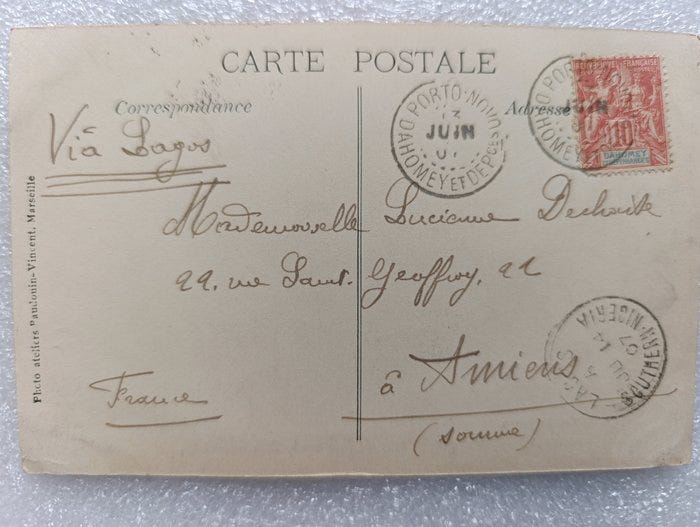 CARTE POSTALE
Correspondance
Adresse
Viâ Lagos
PORTO-NOVO
13
JUIN
07
DAHOMEY ET DÉPCES
PORTO-NOVO
JUIN
DAHOMEY
RÉPUBLIQUE FRANÇAISE
10
DAHOMEY
ET DÉPENDANCES
Mademoiselle Lucienne
rue Saint Geoffroy,
à Amiens
(Somme)
France
LAGOS
JU 14
07
SOUTHERN-NIGERIA
Photo ateliers Baudouin-Vincent, Marseille